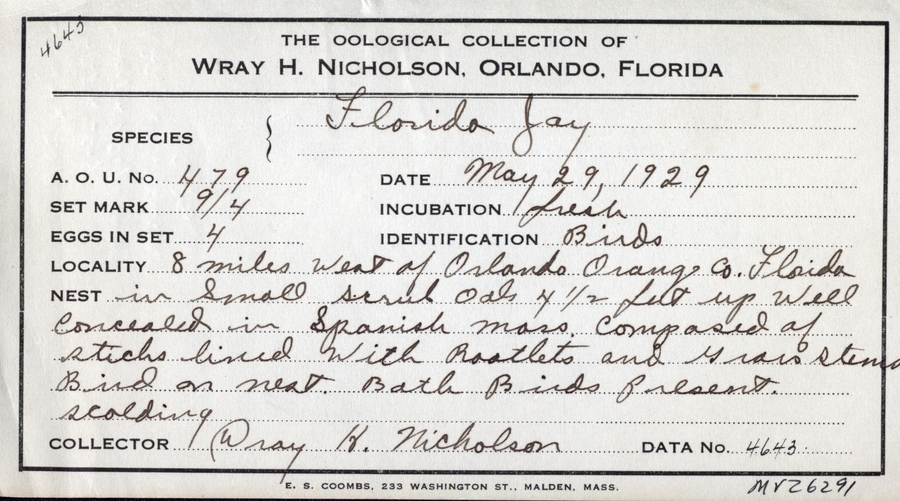 4643
THE OOLOGICAL COLLECTION OF
WRAY H. NICHOLSON, ORLANDO, FLORIDA
SPECIES Florida Jay
A. O. U. No. 479 DATE May 29, 1929
SET MARK 9/4 INCUBATION fresh
EGGS IN SET 4 IDENTIFICATION Birds
LOCALITY 8 miles West of Orlando Orange Co. Florida
NEST in Small scrub Oak 4 1/2 feet up Well
Concealed in Spanish moss. Composed of
sticks lined With Rootlets and Grass stems
Bird on nest. Both Birds Present.
scolding
COLLECTOR Wray H. Nicholson DATA No. 4643
E. S. COOMBS, 233 WASHINGTON ST., MALDEN, MASS.
MVZ6291